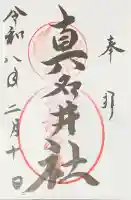 奉拝
真名井社
令和八年二月十一日